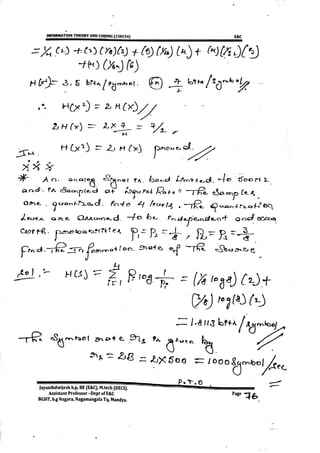 INFORMATION THEORY AND CODING (10EC55) E&C
H(x²) = 3.5 bits/symbol. (or) 7/2 bits/symbol
∴ H(x²) = 2 H(x)
2 H(x) = 2 x 7/4 = 7/2
H(x²) = 2 H(x) proved.
* An analog signal is band limited to 500Hz
and is sampled at Nyquist Rate. The samples
are quantized into 4 levels. The quantization
levels are assumed to be independent and occur
with probabilities P₁ = P₄ = 1/8, P₂ = P₃ = 3/8
find The Information rate of The source.
Sol :- H(s) = Σ Pi log 1/Pi = (1/8 log 8)(2) +
= 1.8113 bits/symbol
The symbol rate rs is given by
rs = 2B = 2x500 = 1000 symbol/sec
P.T.O
Jayanthdwijesh h.p, BE (E&C), M.tech (DECS).
Assistant Professor –Dept of E&C
BGSIT, b,g Nagara, Nagamangala Tq, Mandya.
Page 76